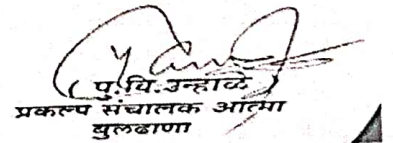 ( पु. वि. उन्हाळे )
प्रकल्प संचालक आत्मा
बुलढाणा